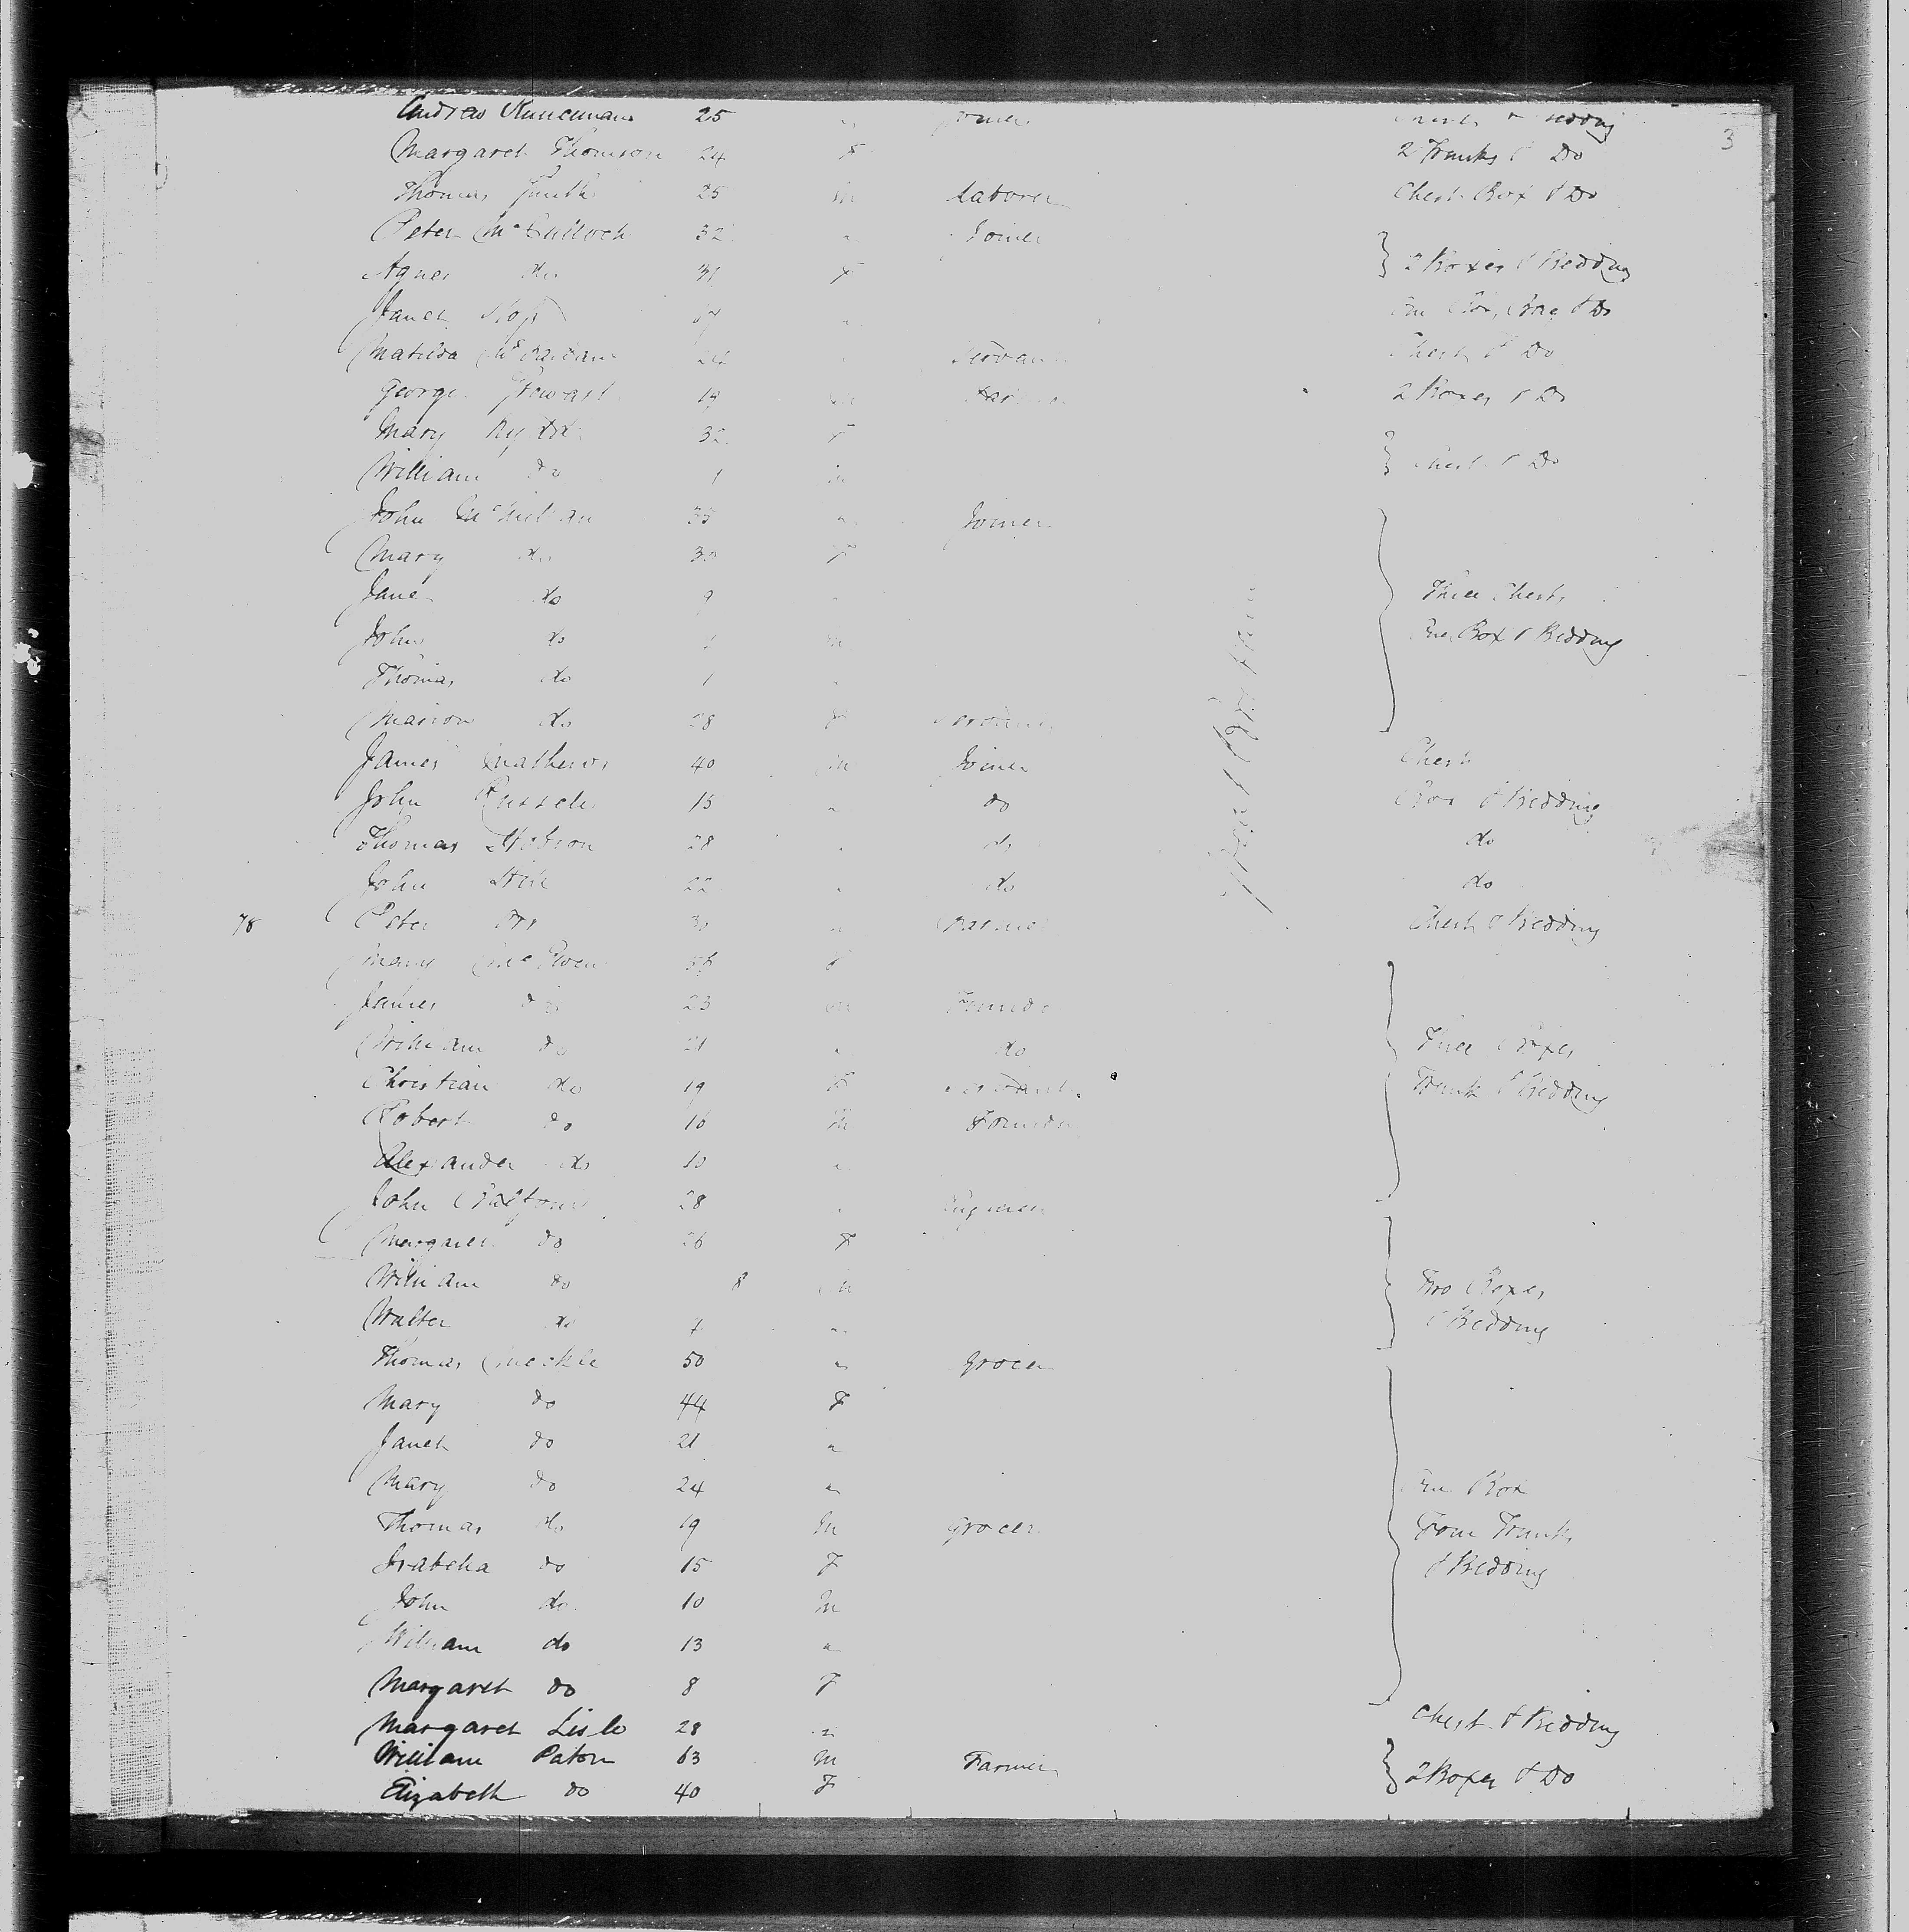 3
Andrew 25 " Joiner Chest & Bedding
Margaret Thomson 24 F 2 Trunks & Do
Thomas Smith 25 M Laborer Chest Box & Do
Peter McCulloch 32 " Joiner
Agnes do 31 F 2 Boxes & Bedding
Janet " One Box, Bag & Do
Matilda Servant Chest & Do
George Stewart 19 M 2 Boxes & Do
Mary 32 F
William do 1 M Chest & Do
John McMillan 35 " Joiner
Mary do 30 F
Jane do 9 " Three Chests
John do M One Box & Bedding
Thomas do 1 "
Marion do 28 F Servant
Great Britain
James Mathews 40 M Joiner Chest
John Russell 15 " do Box & Bedding
Thomas Hobson 28 " do do
John 22 " do do
78 Peter Orr 30 " Farmer Chest & Bedding
Mary McEwen 56 F
James do 23 M
William do 21 " do Three Boxes
Christian do 19 F Servant Trunk & Bedding
Robert do 16 M
Alexander do 10 "
John 28 "
Margaret do 26 F
William do 8 M Two Boxes
Walter do 7 " & Bedding
Thomas Meckle 50 " Grocer
Mary do 44 F
Janet do 21 "
Mary do 24 " One Box
Thomas do 19 M Grocer Four Trunks
Isabella do 15 F & Bedding
John do 10 M
William do 13 "
Margaret do 8 F
Margaret Lisle 28 " Chest & Bedding
William Paton 63 M Farmer
Elizabeth do 40 F 2 Boxes & Do